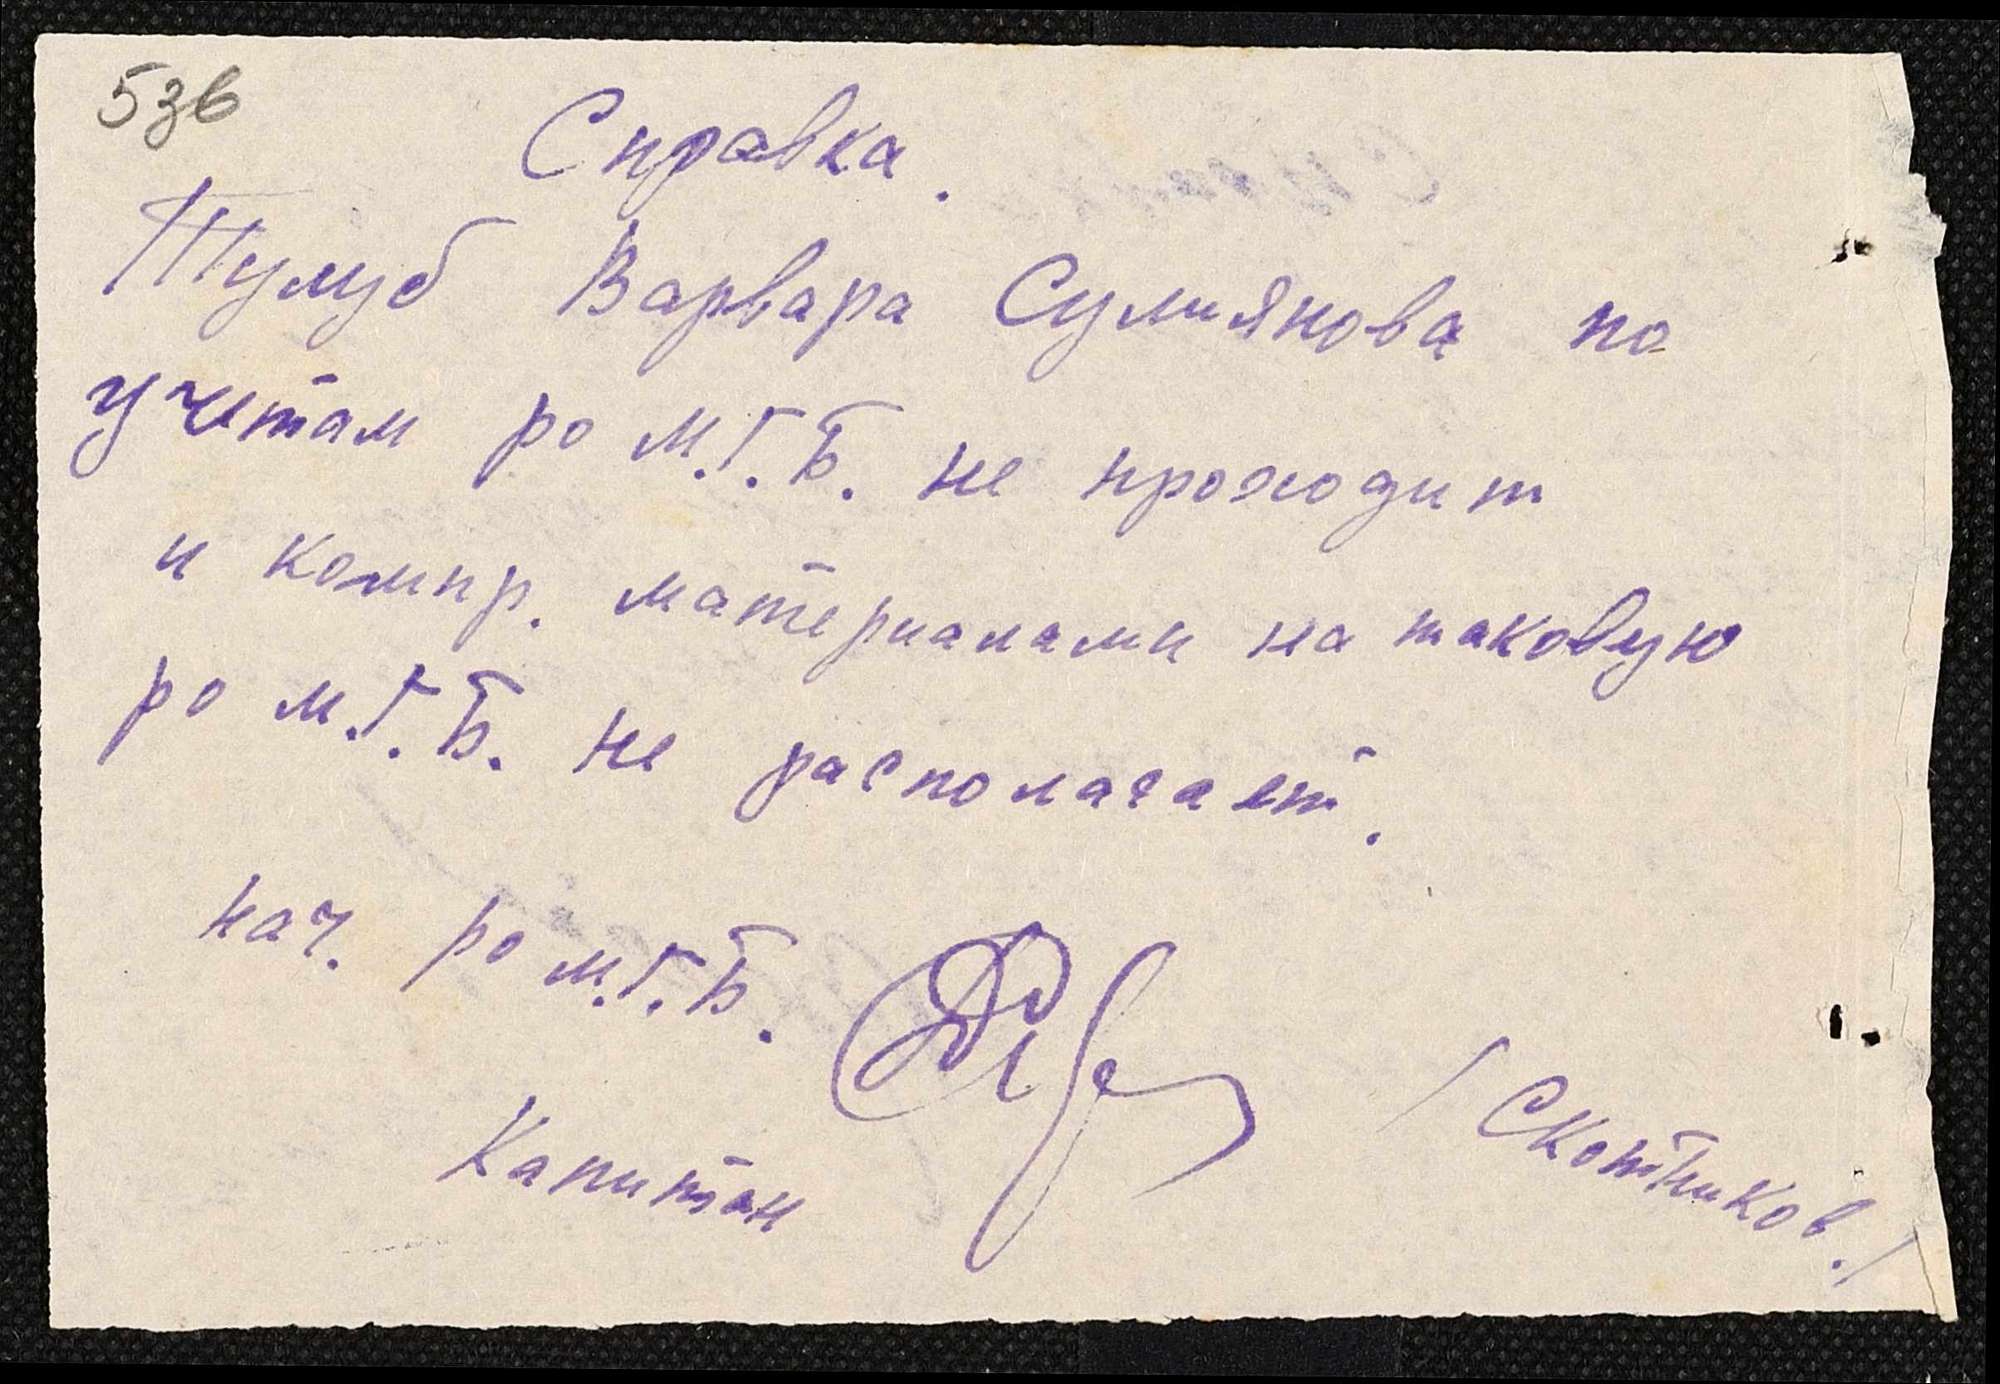 53в
Справка.
Тулуб Варвара Сумиянова по
учетам ро м.г.б. не проходит
и компр. материалами на таковую
ро м.г.б. не располагает.
нач. ро м.г.б.
Капитан /Скотников./